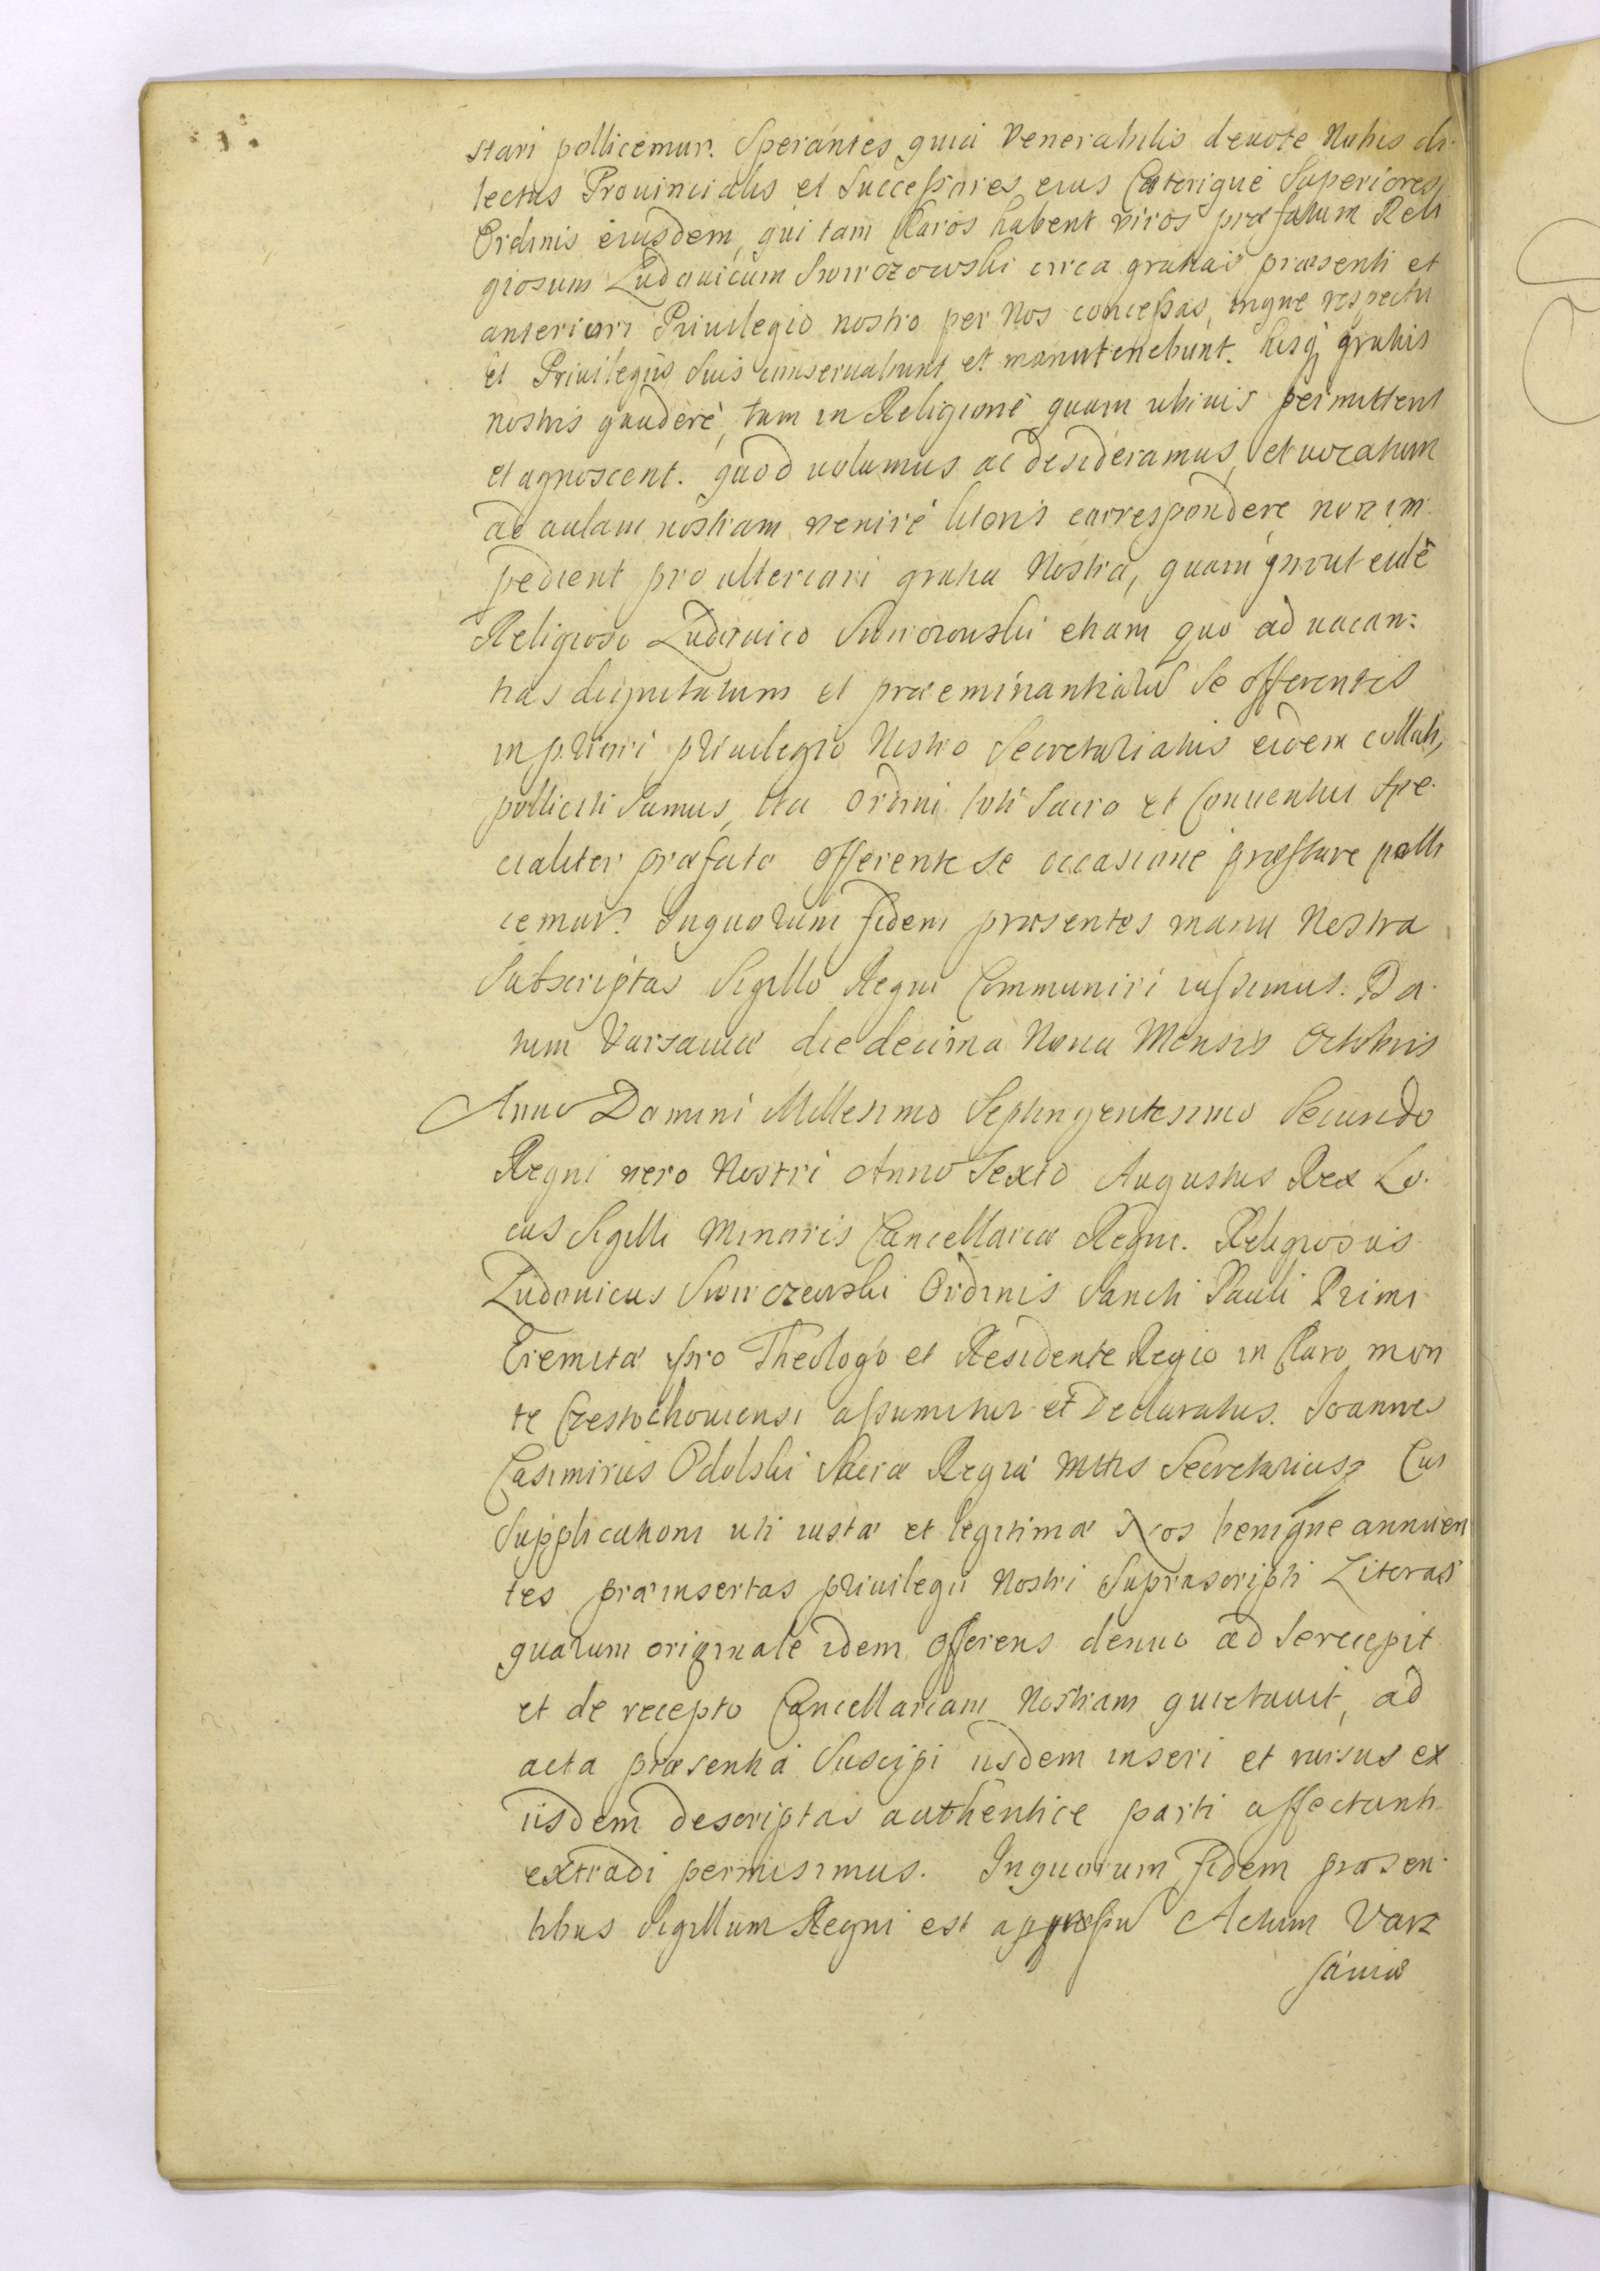 stari pollicemur. Sperantes quia Venerabilis deuote Nobis di-
lectus Prouincialis et Successores eius Caeterique Superiores
Ordinis eiusdem, qui tam Claros habent viros praefatum Reli
giosum Ludouicum Swirczowski circa gratias praesenti et
anteriori Priuilegio nostro per Nos concessas, inque respectu
et Priuilegijs suis conseruabunt et manutenebunt. hisq gratijs
nostris gaudere, tam in Religione quam ubiuis permittent
et agnoscent. quod uolumus ac desideramus, et uocatum
ad aulam nostram venire literis correspondere non im-
pedient pro ulteriori gratia Nostra, quam prout eidē
Religioso Ludouico Swirczowski etiam quo ad uacan:
tias dignitatum et praeeminantiarū se offerentes
in priori priuilegio Nostro Secretariatus eidem collati,
polliciti sumus, ita Ordini toti Sacro et Conuentui Spe-
cialiter praefato offerente se occasione praestare polli
cemur. Inquorum fidem praesentes manu Nostra
Subscriptas Sigillo Regni Communiri iussimus. Da-
tum Varsauiae die decima Nona Mensis Octobris
Anno Domini Millesimo Septingentesimo Secundo
Regni vero Nostri Anno Sexto Augustus Rex Lo-
cus Sigilli Minoris Cancellariae Regni. Religiosus
Ludouicus Swirczewski Ordinis Sancti Pauli Primi
Eremitae pro Theologo et Residente Regio in Claro mon
te Czestochouiensi assumitur et Declaratus. Joannes
Casimirus Odolski Sacrae Regiae Mttis Secretarius Cui
Supplicationi uti iustae et legitimae Nos benigne annuen
tes praeinsertas priuilegii Nostri Suprascripti Literas
quarum originale idem offerens denuo ad se recepit
et de recepto Cancellariam Nostram quietauit, ad
acta praesentia Suscipi iisdem inseri et rursus ex
iisdem descriptas authentice parti affectanti
extradi permisimus. Inquorum fidem praesen-
tibus Sigillum Regni est appressū Actum Var
sauiae